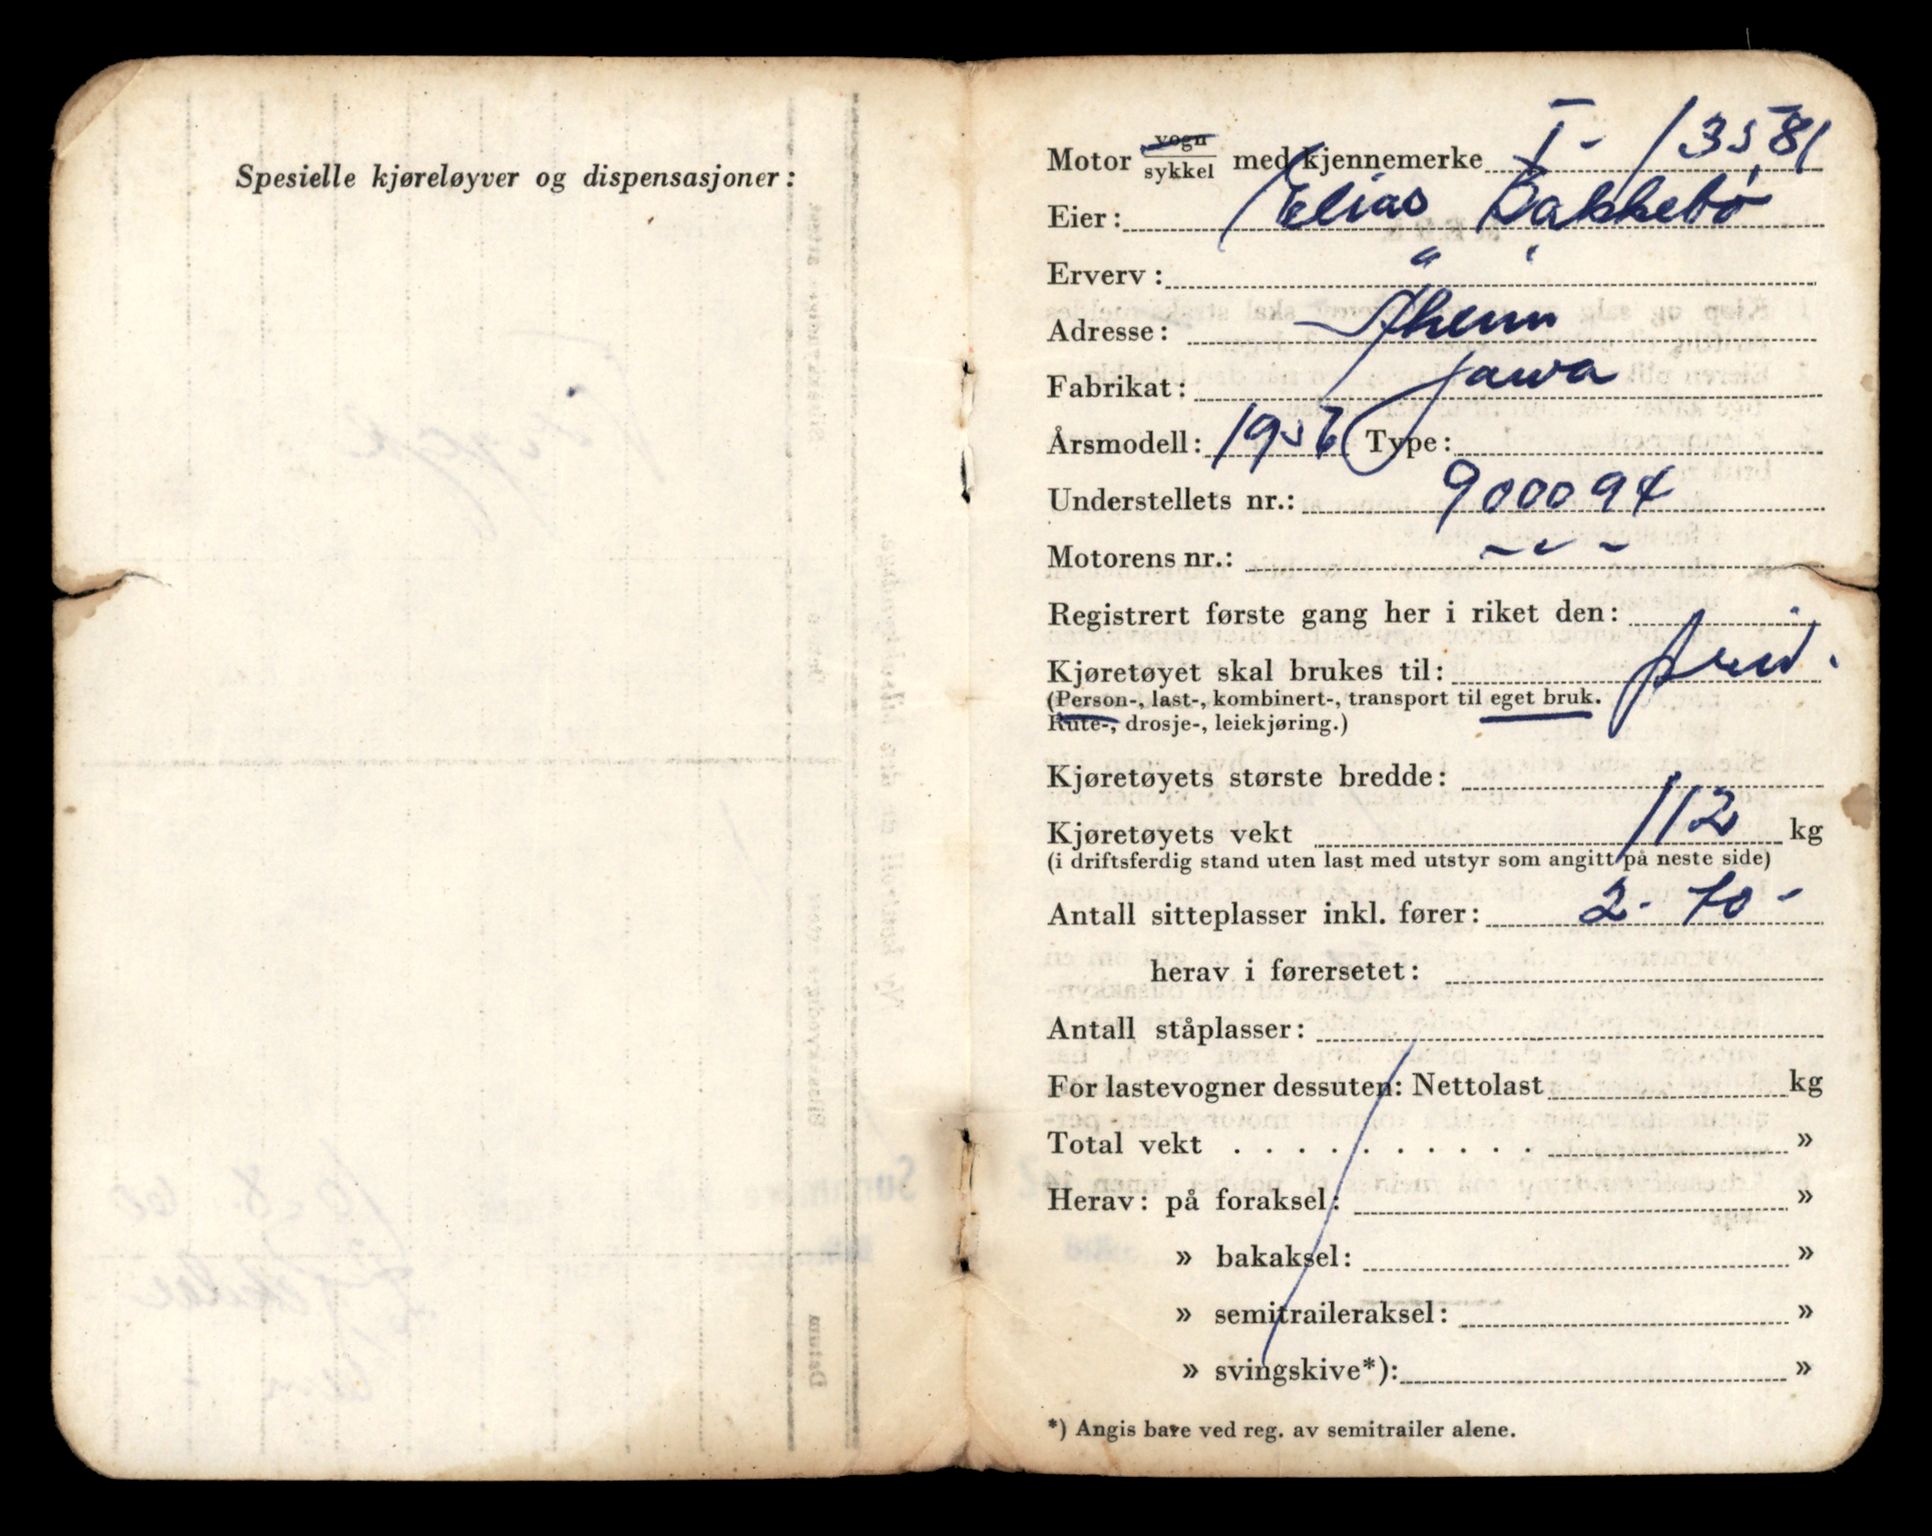 Spesielle kjøreløyver og dispensasjoner:
Motor vogn/sykkel med kjennemerke T- 13581
Eier: Elias Bakkebø
Erverv: "
Adresse: Åheim
Fabrikat: Jawa
Årsmodell: 1956 Type:
Understellets nr.: 900094
Motorens nr.: — " —
Registrert første gang her i riket den:
Kjøretøyet skal brukes til:
(Person-, last-, kombinert-, transport til eget bruk.
Rute-, drosje-, leiekjøring.)
Kjøretøyets største bredde:
Kjøretøyets vekt 112 kg
(i driftsferdig stand uten last med utstyr som angitt på neste side)
Antall sitteplasser inkl. fører: 2-
herav i førersetet:
Antall ståplasser:
For lastevogner dessuten: Nettolast kg
Total vekt . . . . . . . . . . »
Herav: på foraksel: »
» bakaksel: »
» semitraileraksel: »
» svingskive*): »
*) Angis bare ved reg. av semitrailer alene.